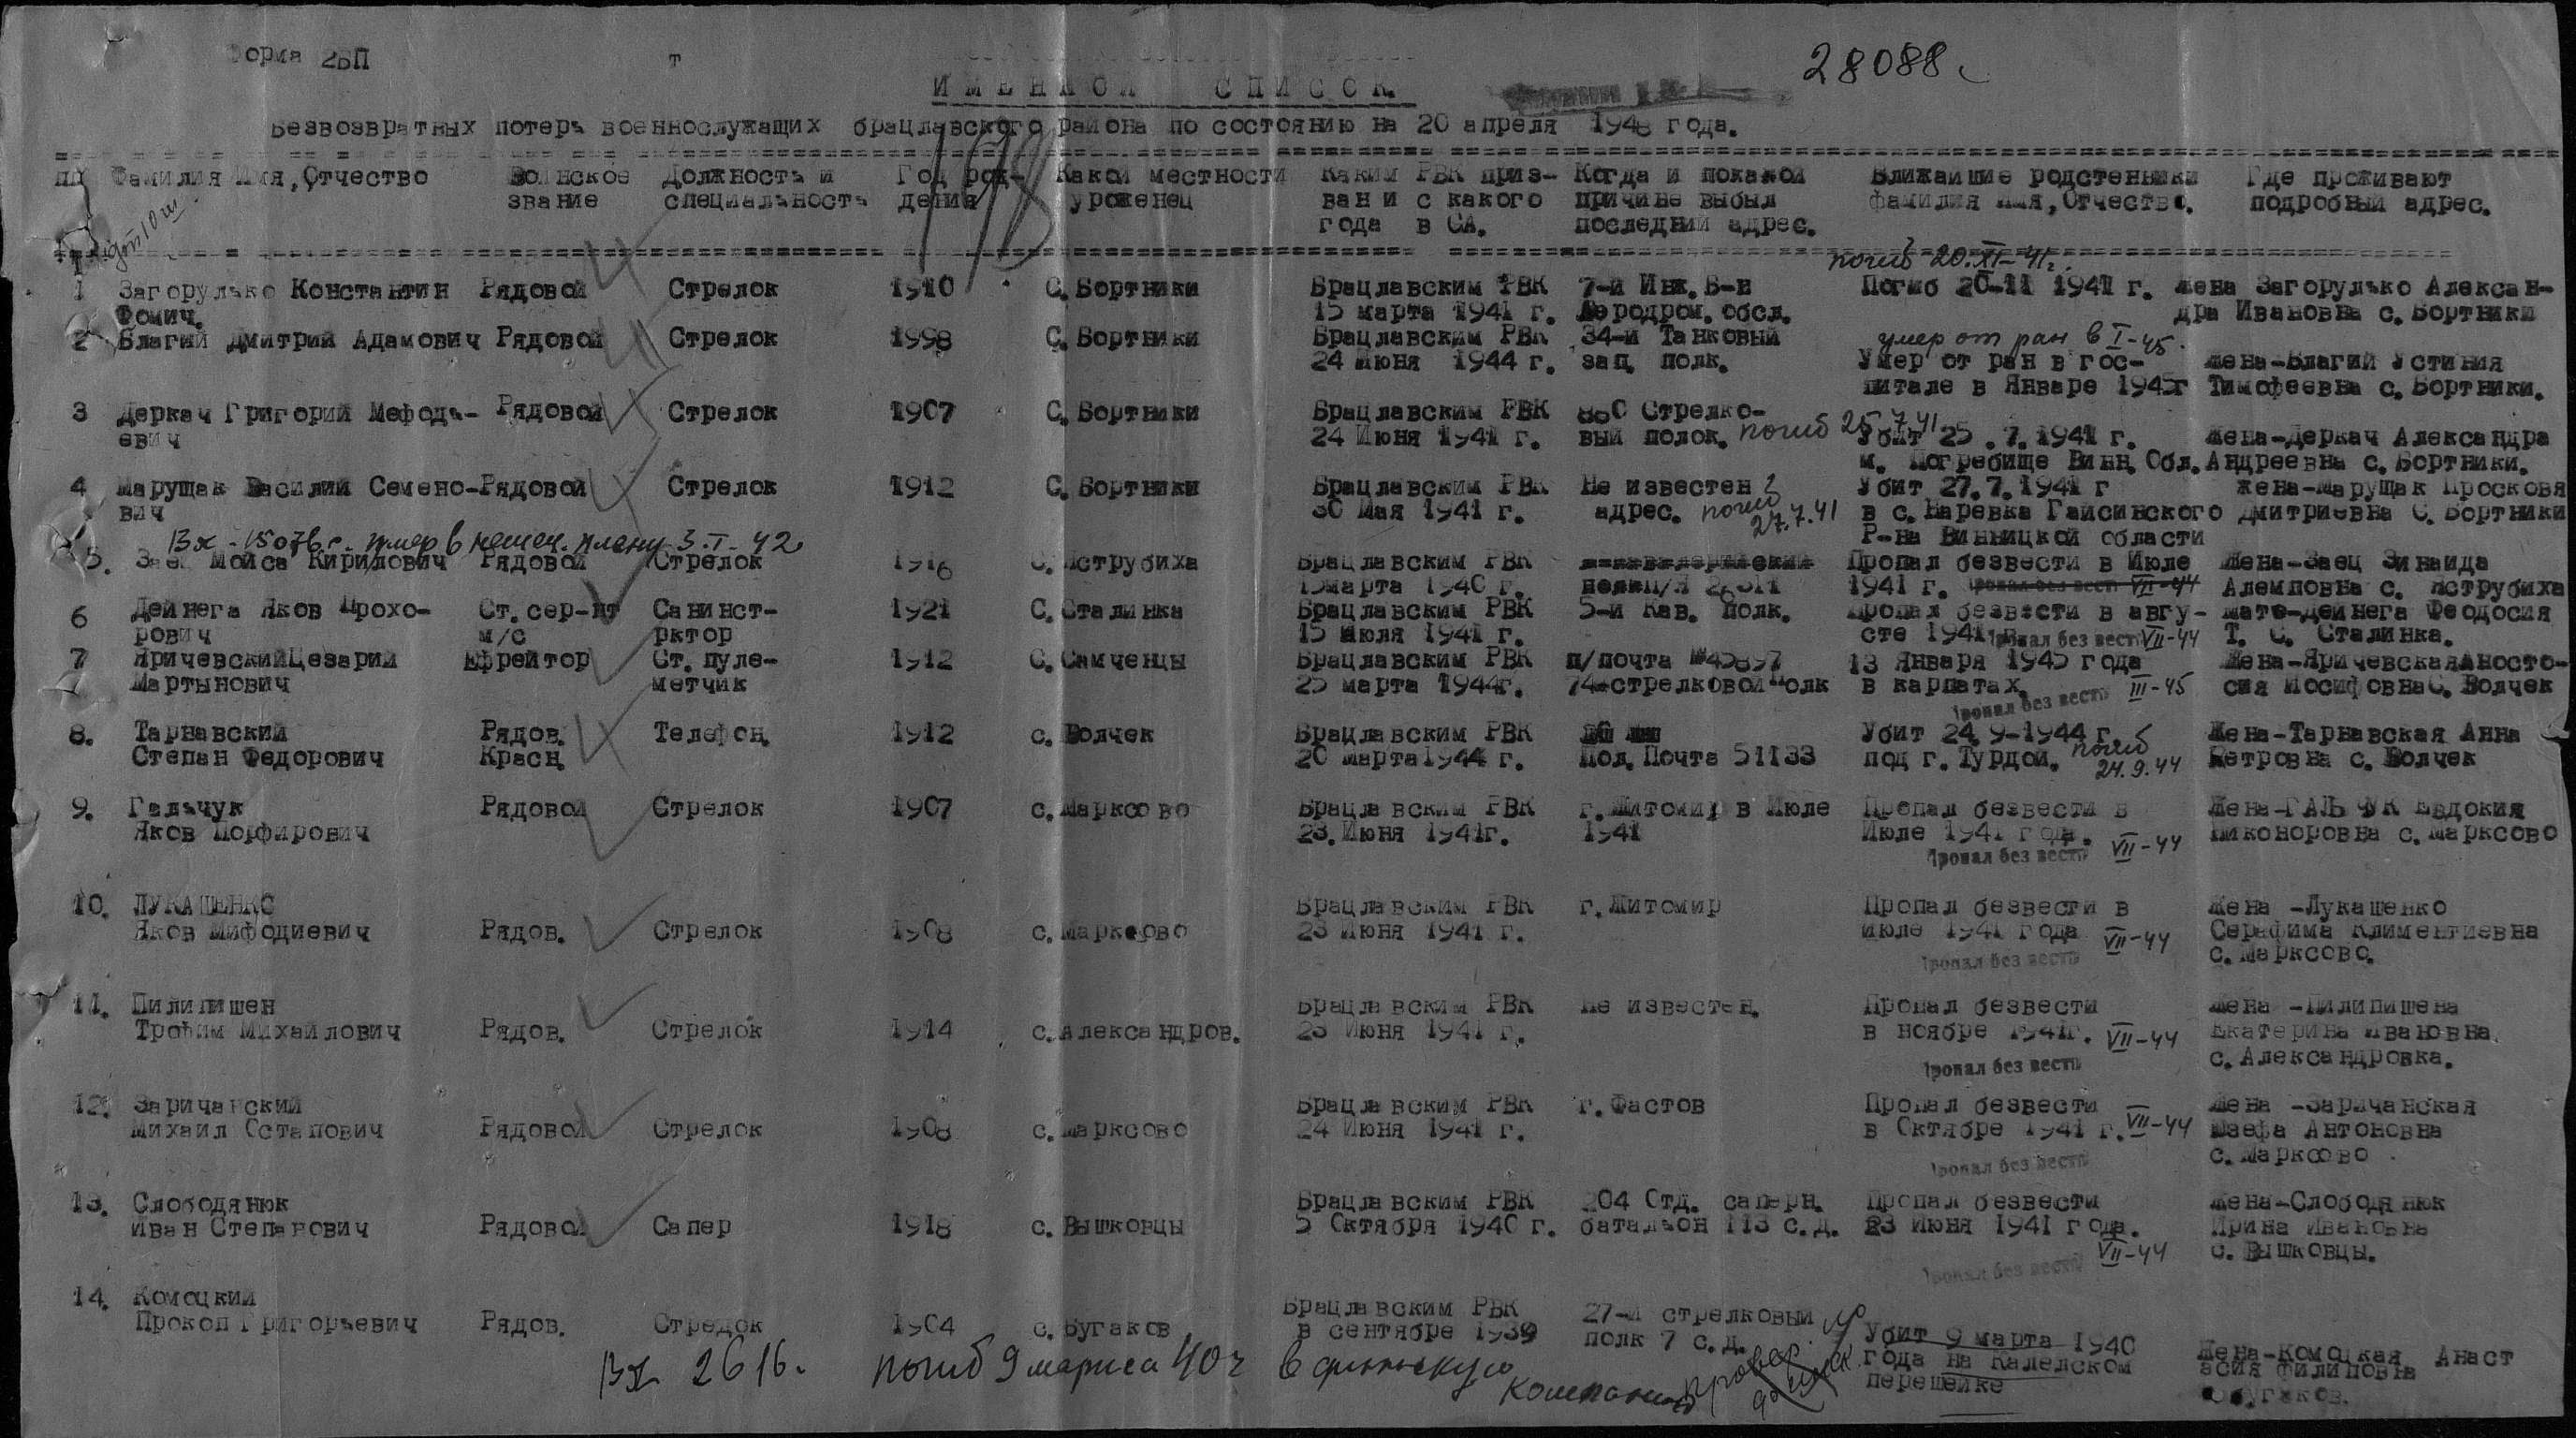 Форма 2БП
28088
ИМЕННОЙ СПИСОК
Безвозвратных потерь военнослужащих брацлавского района по состоянию на 20 апреля 1948 года.
пп Фамилия Имя, Отчество Воинское Должность и Год рож- Какой местности Каким РВК приз- Когда и покакой Ближайшие родстенники Где проживают
звание специальность дения уроженец ван и с какого причине выбыл фамилия имя, Отчество. подробный адрес.
года в СА. последний адрес.
погиб 20.XI-41г.
1 Загорулько Константин Рядовой Стрелок 1910 С. Бортники Брацлавским РВК 7-й Инж. Б-н Погиб 20-11 1941 г. жена Загорулько Алексан-
Фомич. 15 марта 1941 г. Аеродром. обсл. дра Ивановна с. Бортники
2 Благий Дмитрий Адамович Рядовой Стрелок 1998 С. Бортники Брацлавским РВК 34-й Танковый умер от ран в I-45.
24 Июня 1944 г. зап. полк. Умер от ран в гос- жена-Благий Устиния
питале в Январе 1945г Тимофеевна с. Бортники.
3 Деркач Григорий Мефодь- Рядовой Стрелок 1907 С. Бортники Брацлавским РВК 880 Стрелко-
евич 24 Июня 1941 г. вый полок. погиб 25.7.41 Убит 25.7.1941 г. жена-Деркач Александра
м. Погребище Винн. Обл. Андреевна с. Бортники.
4 Марущак Василий Семено- Рядовой Стрелок 1912 С. Бортники Брацлавским РВК Не известен Убит 27.7.1941 г жена-Марущак Просковя
вич 30 Мая 1941 г. адрес. погиб 27.7.41 в с. Каревка Гайсинского Дмитриевна С. Бортники
Р-на Винницкой области
Вх-15076с. умер в немец. плену 3.I-42
5. Заец Мойса Кирилович Рядовой Стрелок 1916 С. Яструбиха Брацлавским РВК Пропал безвести в Июле Жена-Заец Зинаида
15марта 1940 г. 1941 г. Пропал без вести VII-44 Алемповна с. Яструбиха
6 Дейнега Яков Прохо- Ст. сер-нт Санинст- 1921 С. Сталинка Брацлавским РВК 5-й Кав. полк. Пропал безвести в авгу- мать-Дейнега Феодосия
рович м/с рктор 15 Июля 1941 г. сте 1941 Пропал без вести VII-44 Т. С. Сталинка.
7 ЯричевскийЦезарий Ефрейтор Ст. пуле- 1912 С. Самченцы Брацлавским РВК п/почта №45897 13 Января 1945 года Жена-ЯричевскаяАносто-
Мартынович метчик 25 марта 1944г. 74-стрелковой Полк в карпатах. сия ИосифовнаС. Волчек
Пропал без вести III-45
8. Тарнавский Рядов. Телефон. 1912 с. Волчек Брацлавским РВК Убит 24.9-1944 г. Жена-Тарнавская Анна
Степан Федорович Красн. 20 марта1944 г. Пол. Почта 51133 под г. Турдой. погиб 24.9.44 Петровна с. Волчек
9. Гальчук Рядовой Стрелок 1907 с. Марксово Брацлавским РВК г. Житомир в Июле Пропал безвести в Жена-ГАЛЬЧУК Евдокия
Яков Порфирович 23. Июня 1941г. 1941 Июле 1941 года. Никоноровна с. Марксово
Пропал без вести VII-44
10. ЛУКАШЕНКО Брацлавским РВК г. Житомир Пропал безвести в Жена -Лукашенко
Яков Мифодиевич Рядов. Стрелок 1908 с. Марксово 23 Июня 1941 г. Июле 1941 года VII-44 Серафима Климентиевна
Пропал без вести с. Марксово.
11. Пилипишен Брацлавским РВК Не известен. Пропал безвести Жена -Пилипишена
Трохим Михайлович Рядов. Стрелок 1914 с. Александров. 23 Июня 1941 г. в ноябре 1941г. VII-44 Екатерина Ивановна.
Пропал без вести с. Александровка.
12. Заричанский Брацлавским РВК г. Фастов Пропал безвести Жена -Заричанская
Михаил Остапович Рядовой Стрелок 1908 с. Марксово 24 Июня 1941 г. в Октябре 1941 г. VII-44 Юзефа Антоновна
Пропал без вести с. Марксово
13. Слободянюк Брацлавским РВК 204 Отд. саперн. Пропал безвести Жена-Слободянюк
Иван Степанович Рядовой Сапер 1918 с. Вышковцы 5 Октября 1940 г. батальон 113 с.д. 23 Июня 1941 года. Ирина Ивановна
Пропал без вести VII-44 с. Вышковцы.
14. Комоцкий Брацлавским РВК 27-й стрелковый
Прокоп Григорьевич Рядов. Стрелок 1904 с. Бугаков в сентябре 1939 полк 7 с.д. Убит 9 марта 1940 Жена-Комоцкая Анаст
года на Калелском асия Филиповна
перешейке с. Бугаков.
Вх 2616. погиб 9 марта 40г в финскую компанию